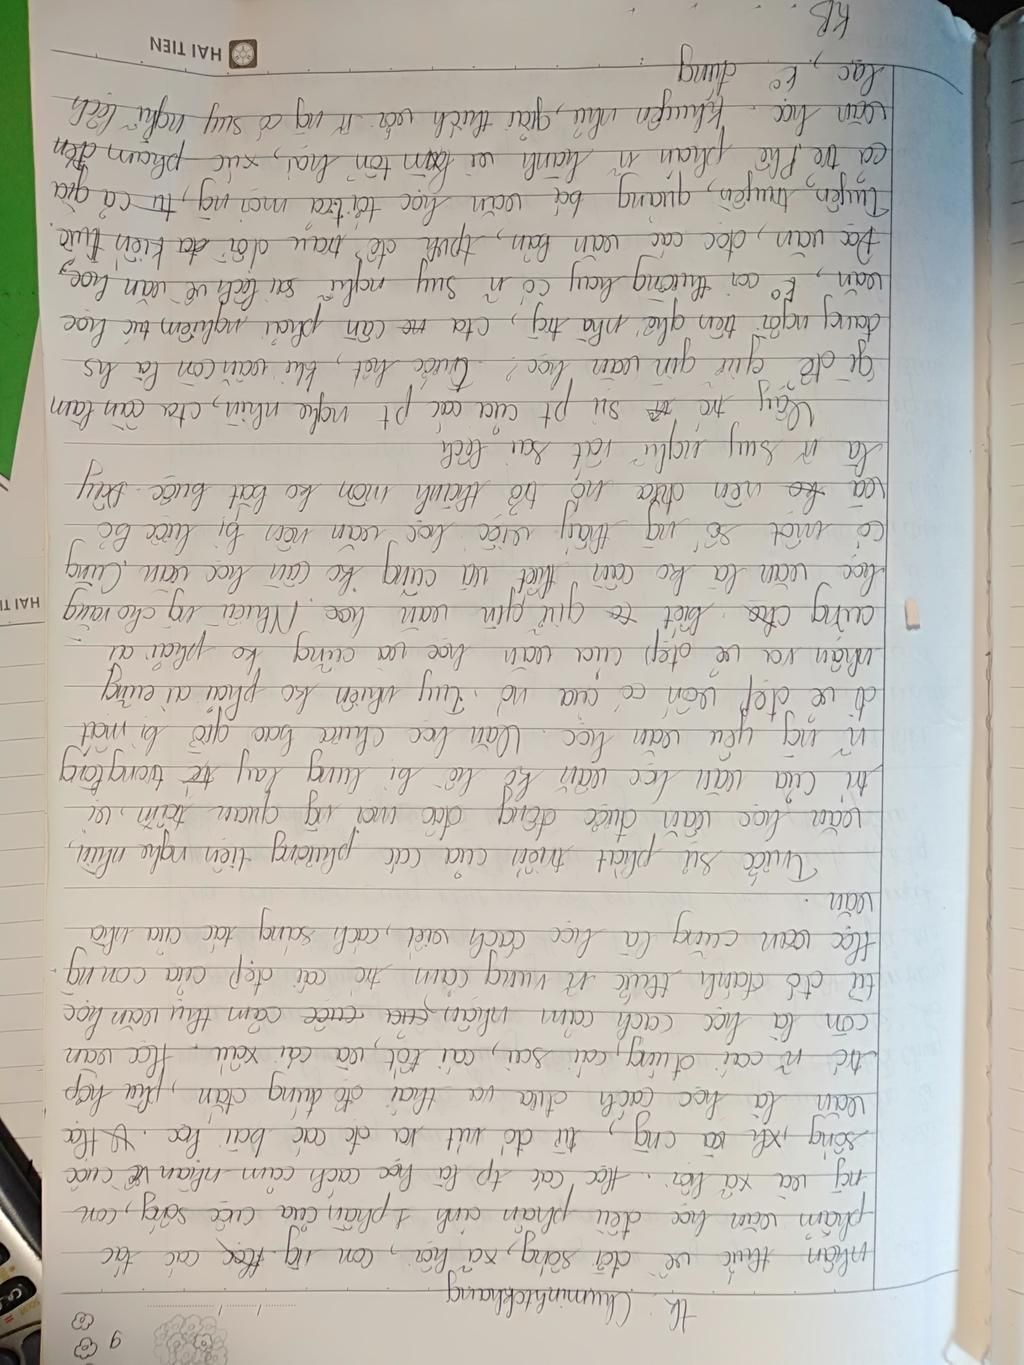 9
tk: Chuminhtckhang
nhận thức về đời sống, xã hội, con ng. Học các tác
phẩm văn học đều phản ánh 1 phần của cuộc sống, con
ng và xã hội. Học các tp là học cách cảm nhận về cuộc
sống, xh và cng, từ đó rút ra đc các bài học. Học
văn là học cách đưa ra thái độ đúng đắn, phù hợp
trc n cái đúng, cái sai, cái tốt, và cái xấu. Học văn
còn là học cách cảm nhận, cảm thụ văn học
từ đó đánh thức n rung cảm trc cái đẹp của con ng
Học văn cũng là học cách viết, cách sáng tác của nhà
văn.
Trước sự phát triển của các phương tiện nghe nhìn,
văn học vẫn được đông đảo mọi ng quan tâm, vị
trí của văn học vẫn ko hề bị lung lay trong lòng
n ng yêu văn học. Văn học chưa bao giờ bị mất
đi vẻ đẹp vốn có của nó. Tuy nhiên ko phải ai cũng
nhận ra vẻ đẹp của văn học và cũng ko phải ai
cũng biết giữ gìn văn học. Nhiều ng cho rằng
học văn là ko cần thiết và cũng ko cần học văn. Cũng
có một số ng thấy việc học văn nên bị lược bỏ
và nên đưa nó trở thành môn ko bắt buộc. Đây
là n suy nghĩ rất sai lệch
Vậy trc sự pt của các pt nghe nhìn, cta cần làm
gì để giữ gìn văn học? Trước hết, khi vẫn còn là hs
đang ngồi trên ghế nhà trg, cta cần phải nghiêm túc học
văn, ko coi thường hay có n suy nghĩ sai lệch về văn học,
Đọc văn, đọc các văn bản, tpvh để trau dồi kiến thức.
Tuyên truyền, quảng bá văn học tới mọi ng, từ cả già
cả trẻ. Phê phán n hành vi làm tổn hại, xúc phạm đến
văn học. Khuyên nhủ, giải thích với n ng có suy nghĩ lệch
lạc, ko đúng
KB
HAI TIEN
HAI TI